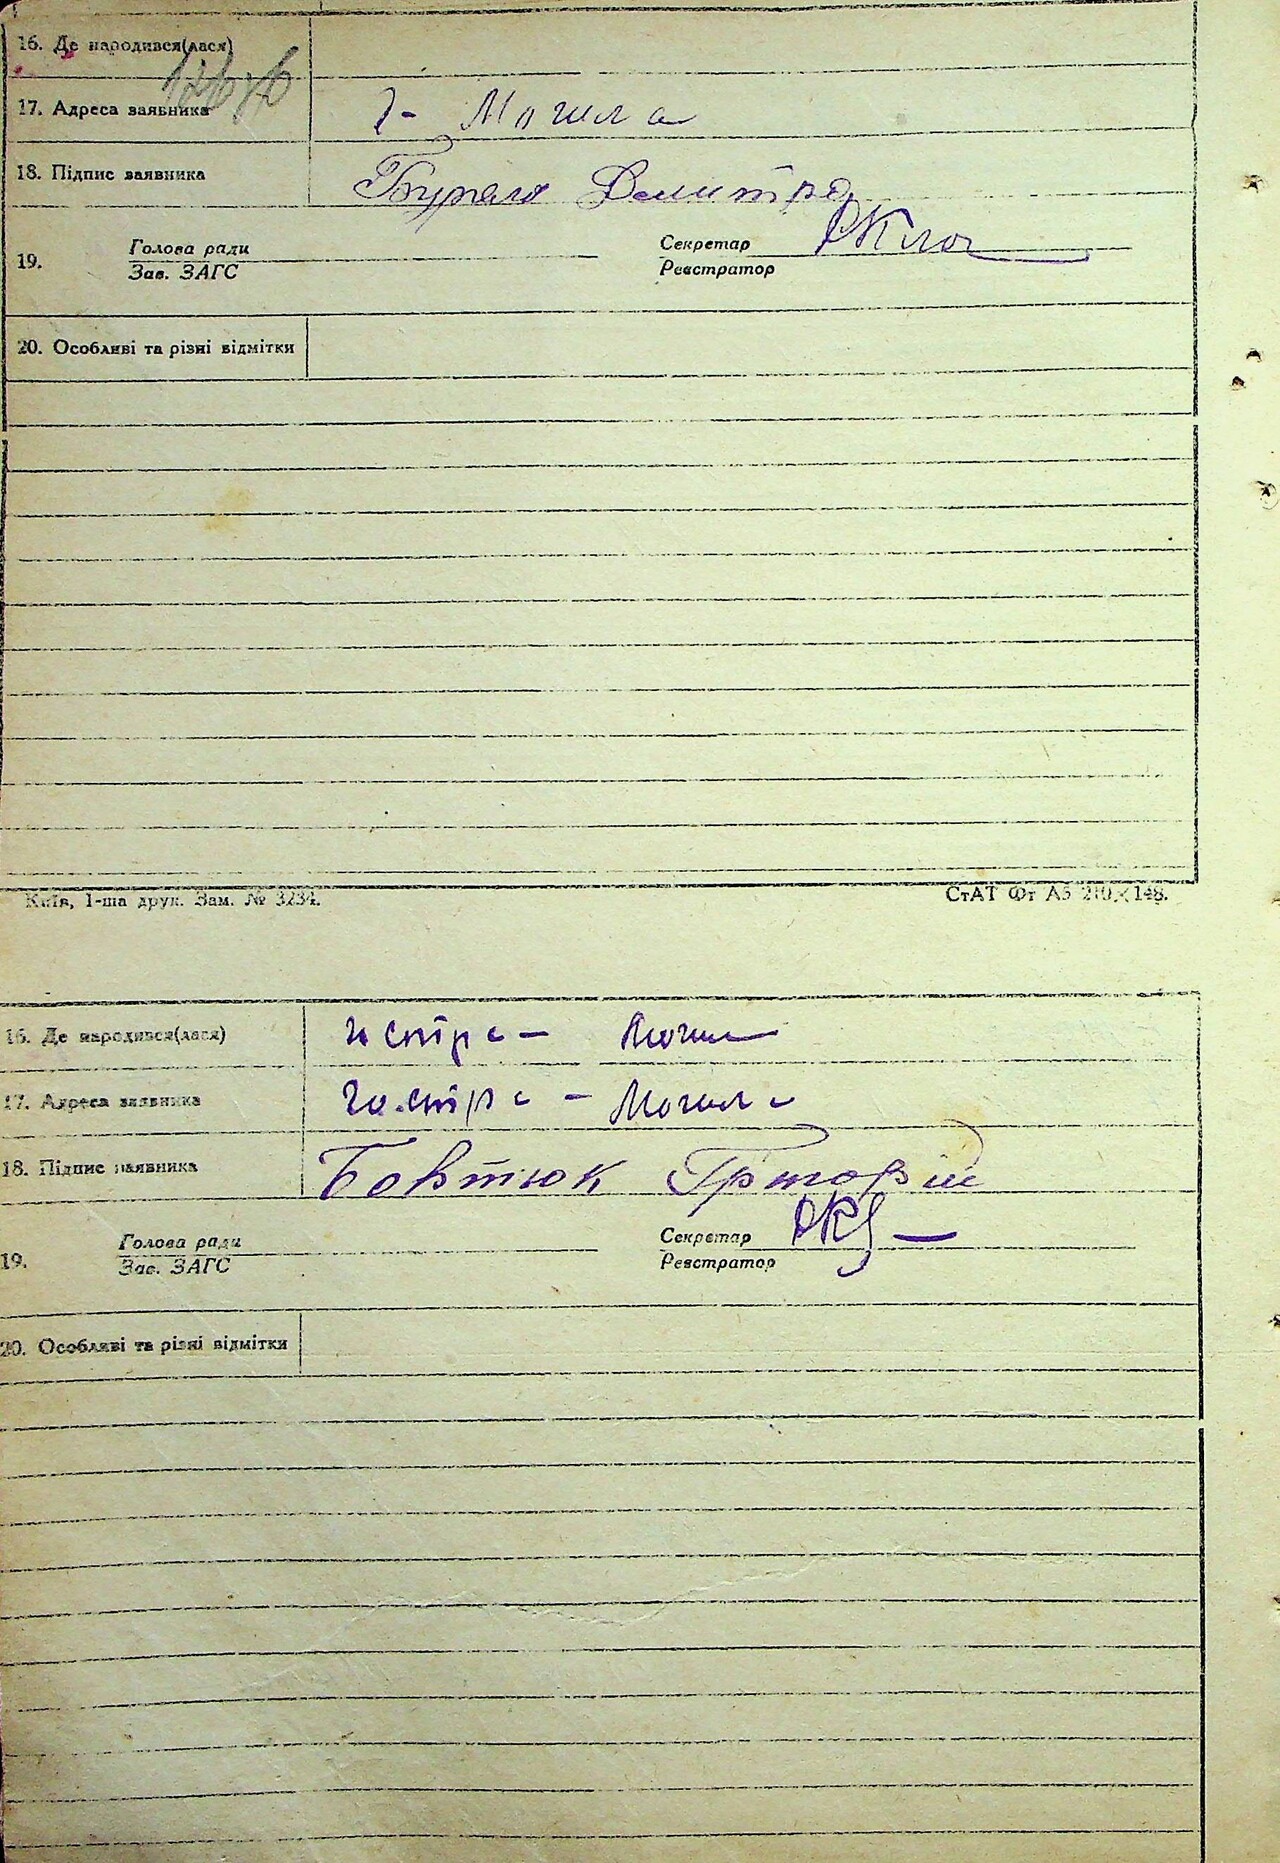 16. Де народився(лася)
17. Адреса заявника Г- Могила
18. Підпис заявника Демитро
19. Голова ради Секретар
Зав. ЗАГС Реєстратор
20. Особливі та різні відмітки
Київ, 1-ша друк. Зам. № 3234. СтАТ Фт А5 210×148.
16. Де народився(лася) Гостра - Могила
17. Адреса заявника Гостра - Могила
18. Підпис заявника Бовтюк Григорій
19. Голова ради Секретар
Зав. ЗАГС Реєстратор
20. Особливі та різні відмітки